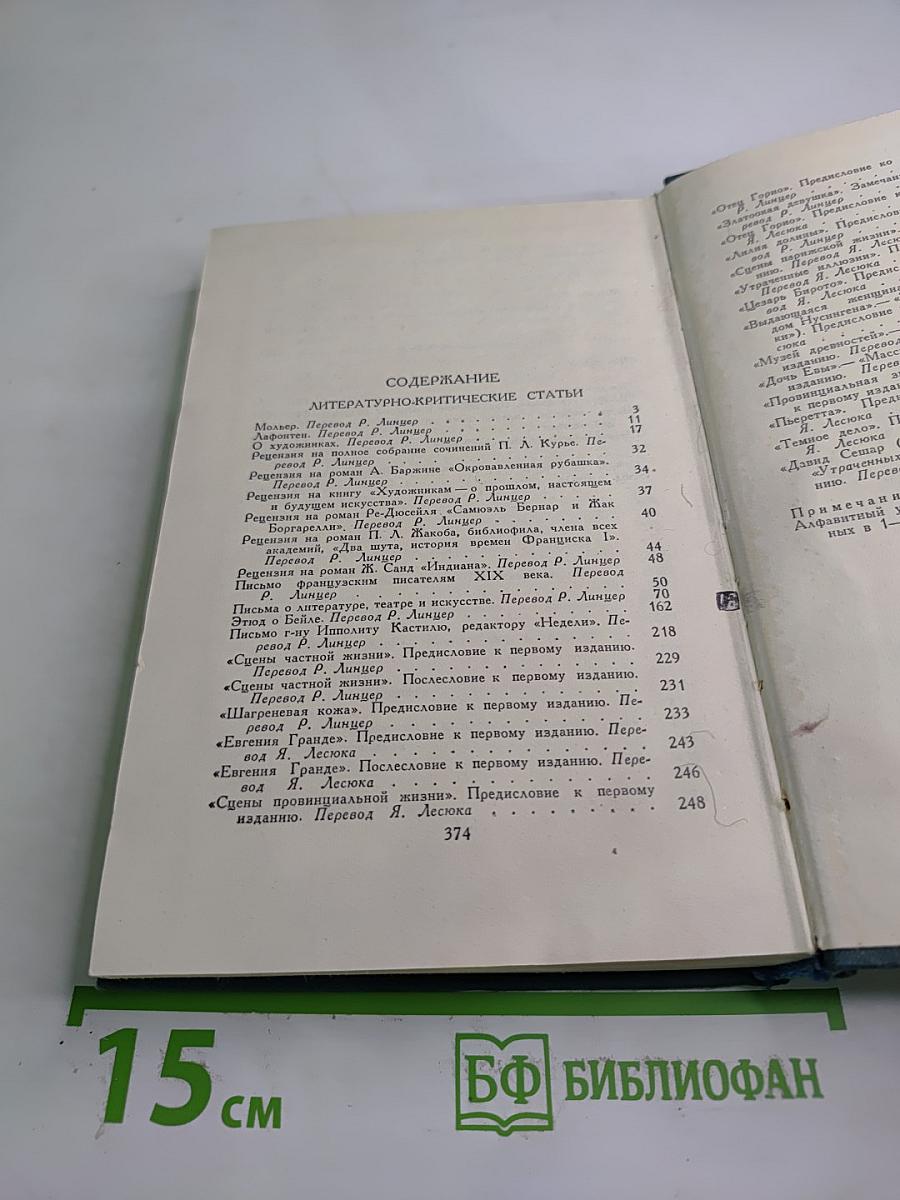 СОДЕРЖАНИЕ
ЛИТЕРАТУРНО-КРИТИЧЕСКИЕ СТАТЬИ
Мольер. Перевод Р. Линцер . . . . . . . . . . 3
Лафонтен. Перевод Р. Линцер . . . . . . . . . 11
О художниках. Перевод Р. Линцер . . . . . . . 17
Рецензия на полное собрание сочинений П. Л. Курье. Пе-
ревод Р. Линцер . . . . . . . . . . 32
Рецензия на роман А. Баржине «Окровавленная рубашка».
Перевод Р. Линцер . . . . . . . . . . 34
Рецензия на книгу «Художникам — о прошлом, настоящем
и будущем искусства». Перевод Р. Линцер . . . . 37
Рецензия на роман Ре-Дюсейля «Самюэль Бернар и Жак
Боргарелли». Перевод Р. Линцер . . . . . . . 40
Рецензия на роман П. Л. Жакоба, библиофила, члена всех
академий, «Два шута, история времен Франциска I».
Перевод Р. Линцер . . . . . . . . . . 44
Рецензия на роман Ж. Санд «Индиана». Перевод Р. Линцер 48
Письмо французским писателям XIX века. Перевод
Р. Линцер . . . . . . . . . . 50
Письма о литературе, театре и искусстве. Перевод Р. Линцер 70
Этюд о Бейле. Перевод Р. Линцер . . . . . . . 162
Письмо г-ну Ипполиту Кастилю, редактору «Недели». Пе-
ревод Р. Линцер . . . . . . . . . . 218
«Сцены частной жизни». Предисловие к первому изданию.
Перевод Р. Линцер . . . . . . . . . . 229
«Сцены частной жизни». Послесловие к первому изданию.
Перевод Р. Линцер . . . . . . . . . . 231
«Шагреневая кожа». Предисловие к первому изданию. Пе-
ревод Р. Линцер . . . . . . . . . . 233
«Евгения Гранде». Предисловие к первому изданию. Пере-
вод Я. Лесюка . . . . . . . . . . 243
«Евгения Гранде». Послесловие к первому изданию. Пере-
вод Я. Лесюка . . . . . . . . . . 246
«Сцены провинциальной жизни». Предисловие к первому
изданию. Перевод Я. Лесюка . . . . . . . . 248
374
«Отец Горио». Предисловие ко
Р. Линцер . . . .
«Златоокая девушка». Замечан
ревод Р. Линцер . . .
«Отец Горио». Предисловие к
Я. Лесюка . . . .
«Лилия долины». Предислов
вод Р. Линцер . . .
«Сцены парижской жизни».
нию. Перевод Я. Лесю
«Утраченные иллюзии». П
Перевод Я. Лесюка .
«Цезарь Бирото». Предис
вод Я. Лесюка . . .
«Выдающаяся женщина
дом Нусингена».— «
ки»). Предисловие
сюка . . . .
«Музей древностей».—
изданию. Перевод
«Дочь Евы».— «Масс
изданию. Перев
«Провинциальная з
к первому издан
«Пьеретта». Пред
Я. Лесюка
«Темное дело». П
Я. Лесюка
«Давид Сешар (
«Утраченных
нию. Перев
Примечани
Алфавитный у
ных в 1—
15 см
БФ БИБЛИОФАН